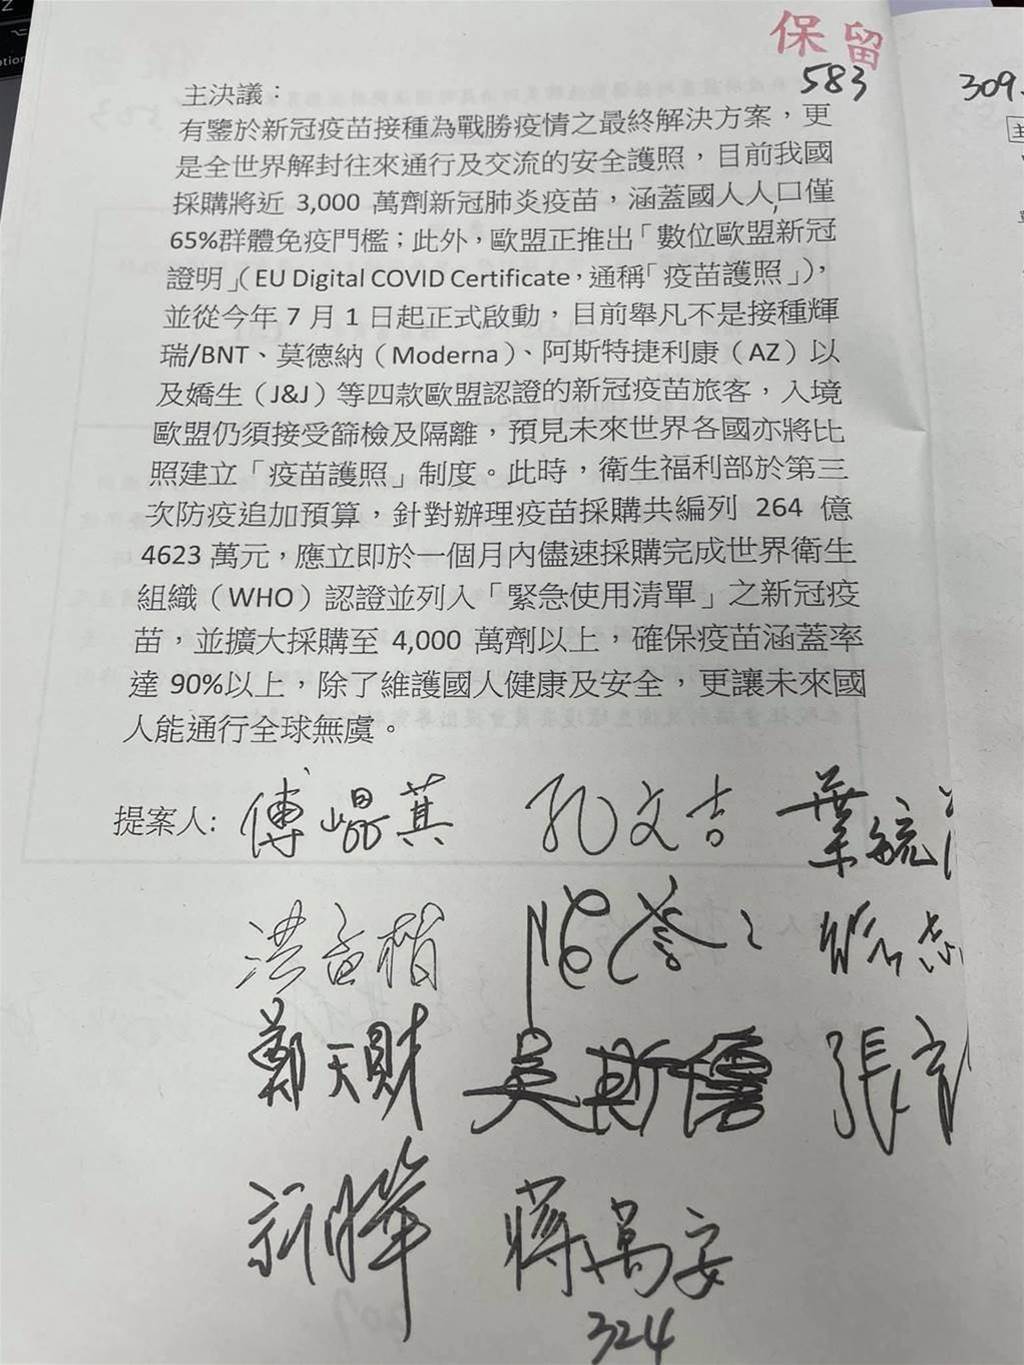 保留
583
309.
主決議：
有鑒於新冠疫苗接種為戰勝疫情之最終解決方案，更
是全世界解封往來通行及交流的安全護照，目前我國
採購將近 3,000 萬劑新冠肺炎疫苗，涵蓋國人人口僅
65%群體免疫門檻；此外，歐盟正推出「數位歐盟新冠
證明」（EU Digital COVID Certificate，通稱「疫苗護照」），
並從今年 7 月 1 日起正式啟動，目前舉凡不是接種輝
瑞/BNT、莫德納（Moderna）、阿斯特捷利康（AZ）以
及嬌生（J&J）等四款歐盟認證的新冠疫苗旅客，入境
歐盟仍須接受篩檢及隔離，預見未來世界各國亦將比
照建立「疫苗護照」制度。此時，衛生福利部於第三
次防疫追加預算，針對辦理疫苗採購共編列 264 億
4623 萬元，應立即於一個月內儘速採購完成世界衛生
組織（WHO）認證並列入「緊急使用清單」之新冠疫
苗，並擴大採購至 4,000 萬劑以上，確保疫苗涵蓋率
達 90%以上，除了維護國人健康及安全，更讓未來國
人能通行全球無虞。
提案人: 傅崐萁 孔文吉 葉毓
洪孟楷
鄭天財 吳斯懷 張育
蔣萬安
324